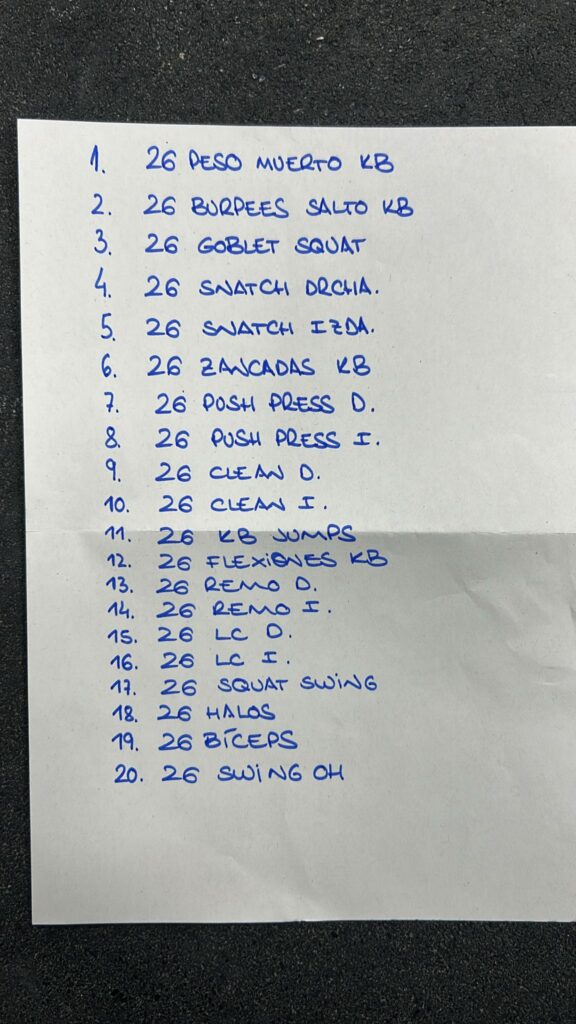 1. 26 PESO MUERTO KB
2. 26 BURPEES SALTO KB
3. 26 GOBLET SQUAT
4. 26 SNATCH DRCHA.
5. 26 SNATCH IZDA.
6. 26 ZANCADAS KB
7. 26 PUSH PRESS D.
8. 26 PUSH PRESS I.
9. 26 CLEAN D.
10. 26 CLEAN I.
11. 26 KB JUMPS
12. 26 FLEXiONES KB
13. 26 REMO D.
14. 26 REMO I.
15. 26 LC D.
16. 26 LC I.
17. 26 SQUAT SWiNG
18. 26 HALOS
19. 26 BÍCEPS
20. 26 SWiNG OH